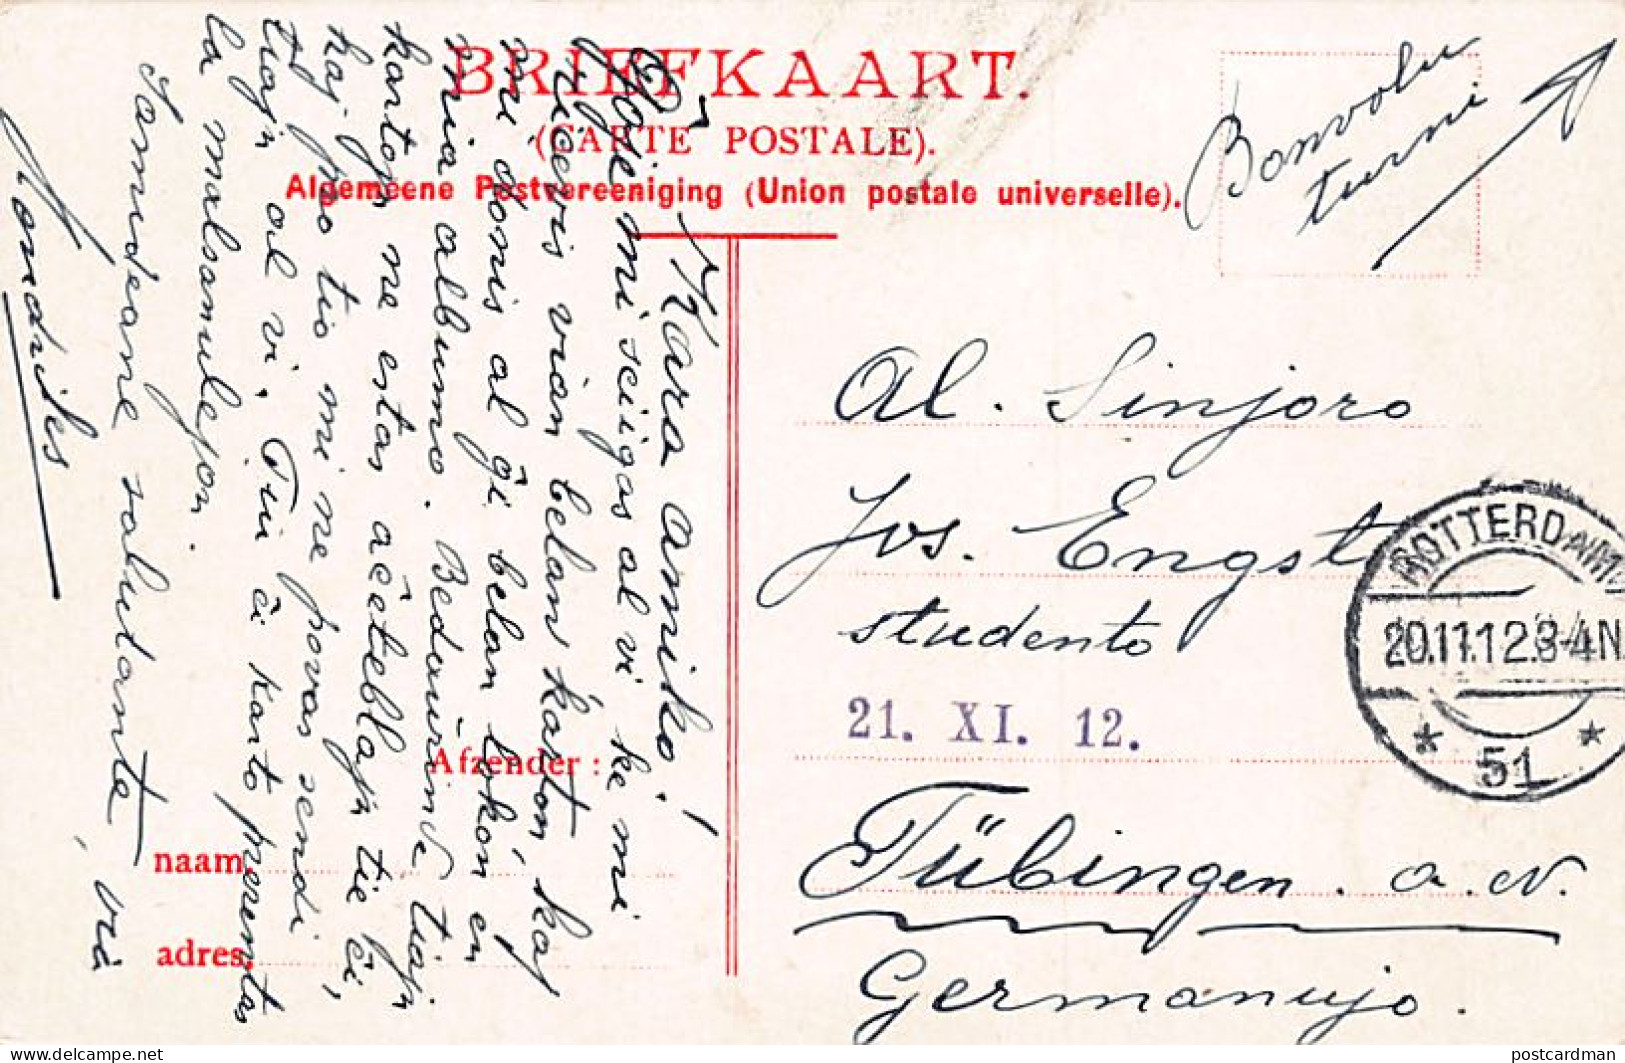 BRIEFKAART.
(CARTE POSTALE).
Algemeene Postvereeniging (Union postale universelle).
Bonvolu
turni
Kara amiko!
Ĝoje mi sciigas al vi ke mi
ricevis vian belan karton, kaj
mi donis al ĝi belan lokon en
mia albumo. Bedaŭrinde tiajn
kartojn ne estas aĉeteblajn tie ĉi,
kaj pro tio mi ne povas sendi
tiajn al vi. Tiu ĉi karto prezentas
la malsanulejon.
Samideane salutante, via
Al. Sinjoro
Jos. Engst
studento
21. XI. 12.
Tübingen. a. N.
Germanujo.
ROTTERDAM
20.11.12.3-4N
51
Afzender:
naam,
adres,
delcampe.net
postcardman